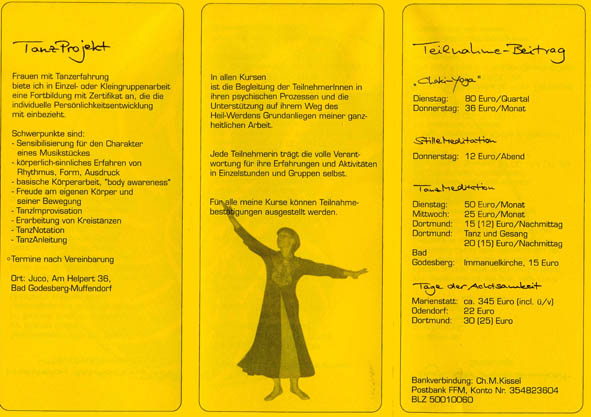 TanzProjekt
Frauen mit Tanzerfahrung
biete ich in Einzel- oder Kleingruppenarbeit
eine Fortbildung mit Zertifikat an, die die
individuelle Persönlichkeitsentwicklung
mit einbezieht.
Schwerpunkte sind:
- Sensibilisierung für den Charakter
eines Musikstückes
- körperlich-sinnliches Erfahren von
Rhythmus, Form, Ausdruck
- basische Körperarbeit, "body awareness"
- Freude am eigenen Körper und
seiner Bewegung
- TanzImprovisation
- Erarbeitung von Kreistänzen
- TanzNotation
- TanzAnleitung
Termine nach Vereinbarung
Ort: Juco, Am Helpert 36,
Bad Godesberg-Muffendorf
In allen Kursen
ist die Begleitung der TeilnehmerInnen in
ihren psychischen Prozessen und die
Unterstützung auf ihrem Weg des
Heil-Werdens Grundanliegen meiner ganz-
heitlichen Arbeit.
Jede Teilnehmerin trägt die volle Verant-
wortung für ihre Erfahrungen und Aktivitäten
in Einzelstunden und Gruppen selbst.
Für alle meine Kurse können Teilnahme-
bestätigungen ausgestellt werden.
Teilnahme-Beitrag
"ChakrenYoga"
Dienstag: 80 Euro/Quartal
Donnerstag: 36 Euro/Monat
StilleMeditation
Donnerstag: 12 Euro/Abend
TanzMeditation
Dienstag: 50 Euro/Monat
Mittwoch: 25 Euro/Monat
Dortmund: 15 (12) Euro/Nachmittag
Dortmund: Tanz und Gesang
20 (15) Euro/Nachmittag
Bad
Godesberg: Immanuelkirche, 15 Euro
Tage der Achtsamkeit
Marienstatt: ca. 345 Euro (incl. ü/v)
Odendorf: 22 Euro
Dortmund: 30 (25) Euro
Bankverbindung: Ch.M.Kissel
Postbank FFM, Konto Nr. 354823604
BLZ 50010060